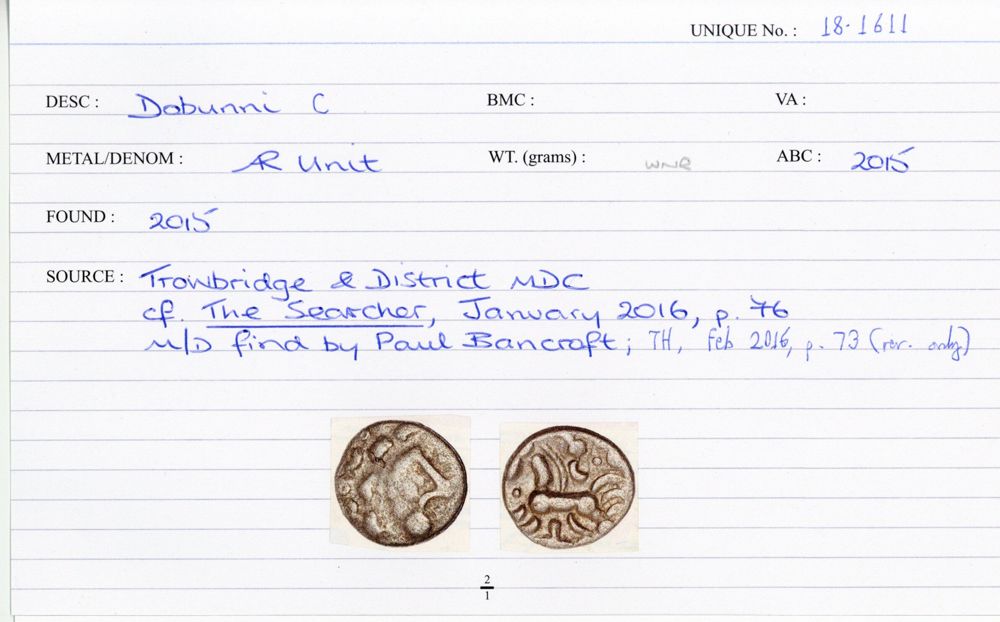 UNIQUE No. : 18-1611
DESC : Dobunni C BMC : VA :
METAL/DENOM : AR Unit WT. (grams) : WNR ABC : 2015
FOUND : 2015
SOURCE : Trowbridge & District MDC
cf. The Searcher, January 2016, p. 76
M/D find by Paul Bancroft; TH, Feb 2016, p. 73 (rev. only)
2
1